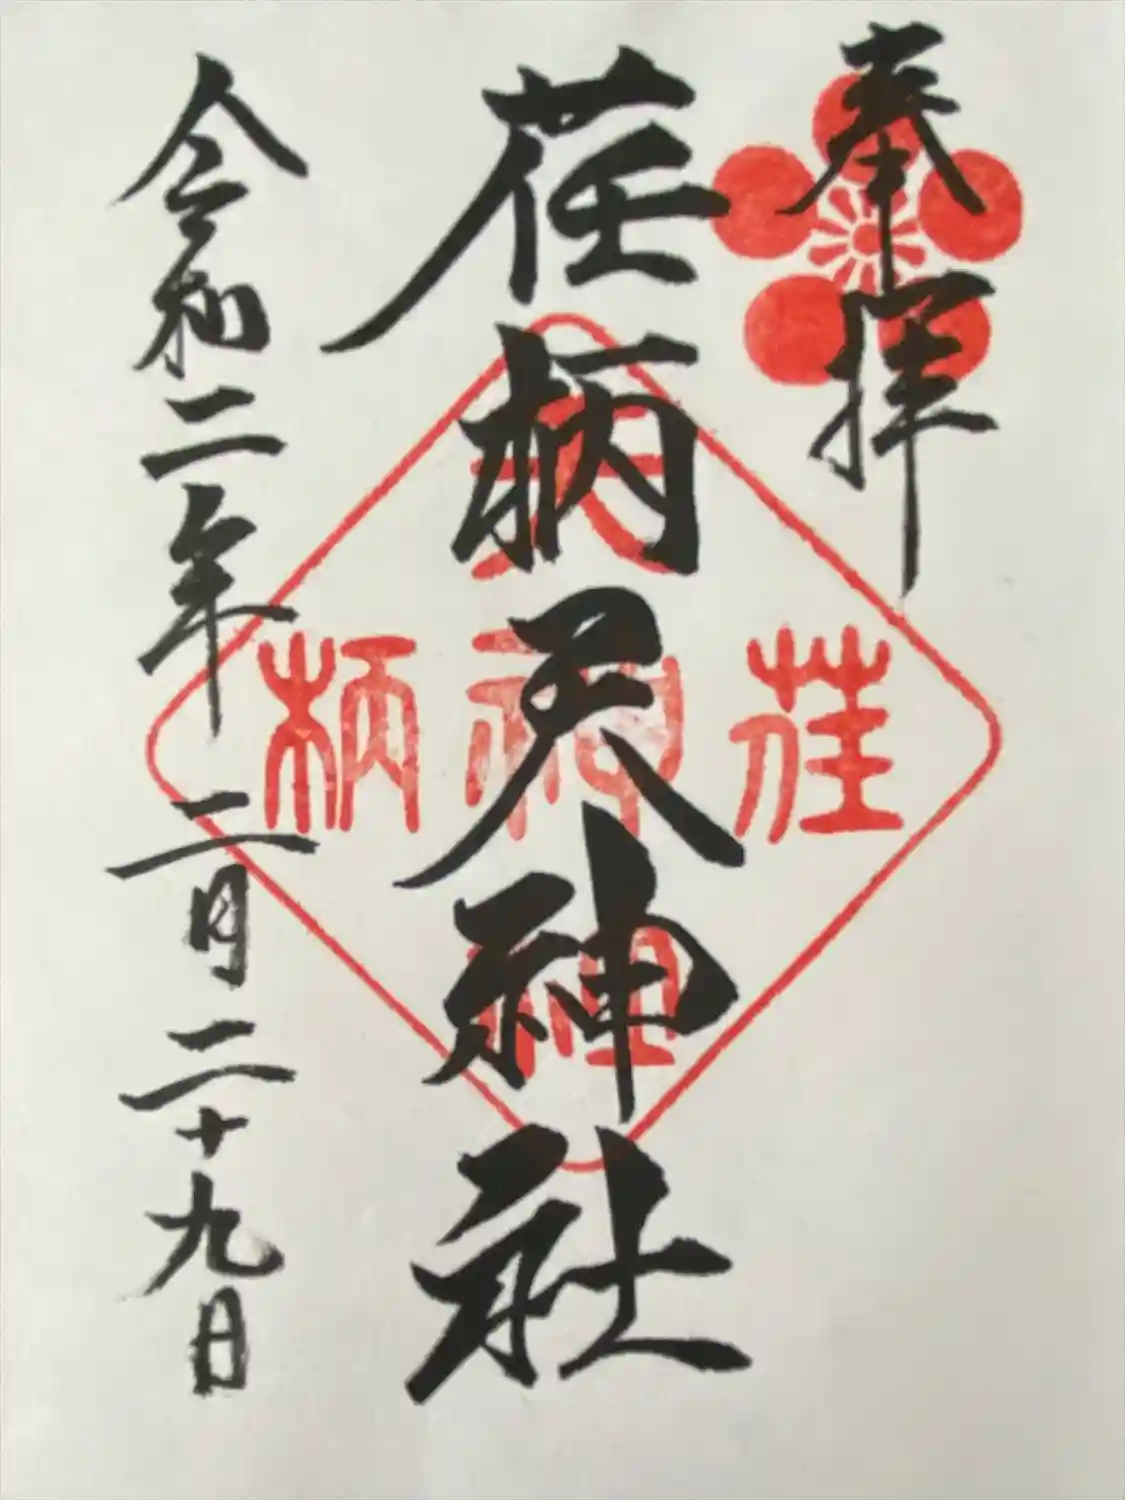 奉拝
荏柄天神社
令和二年二月二十九日
荏
天神社
柄